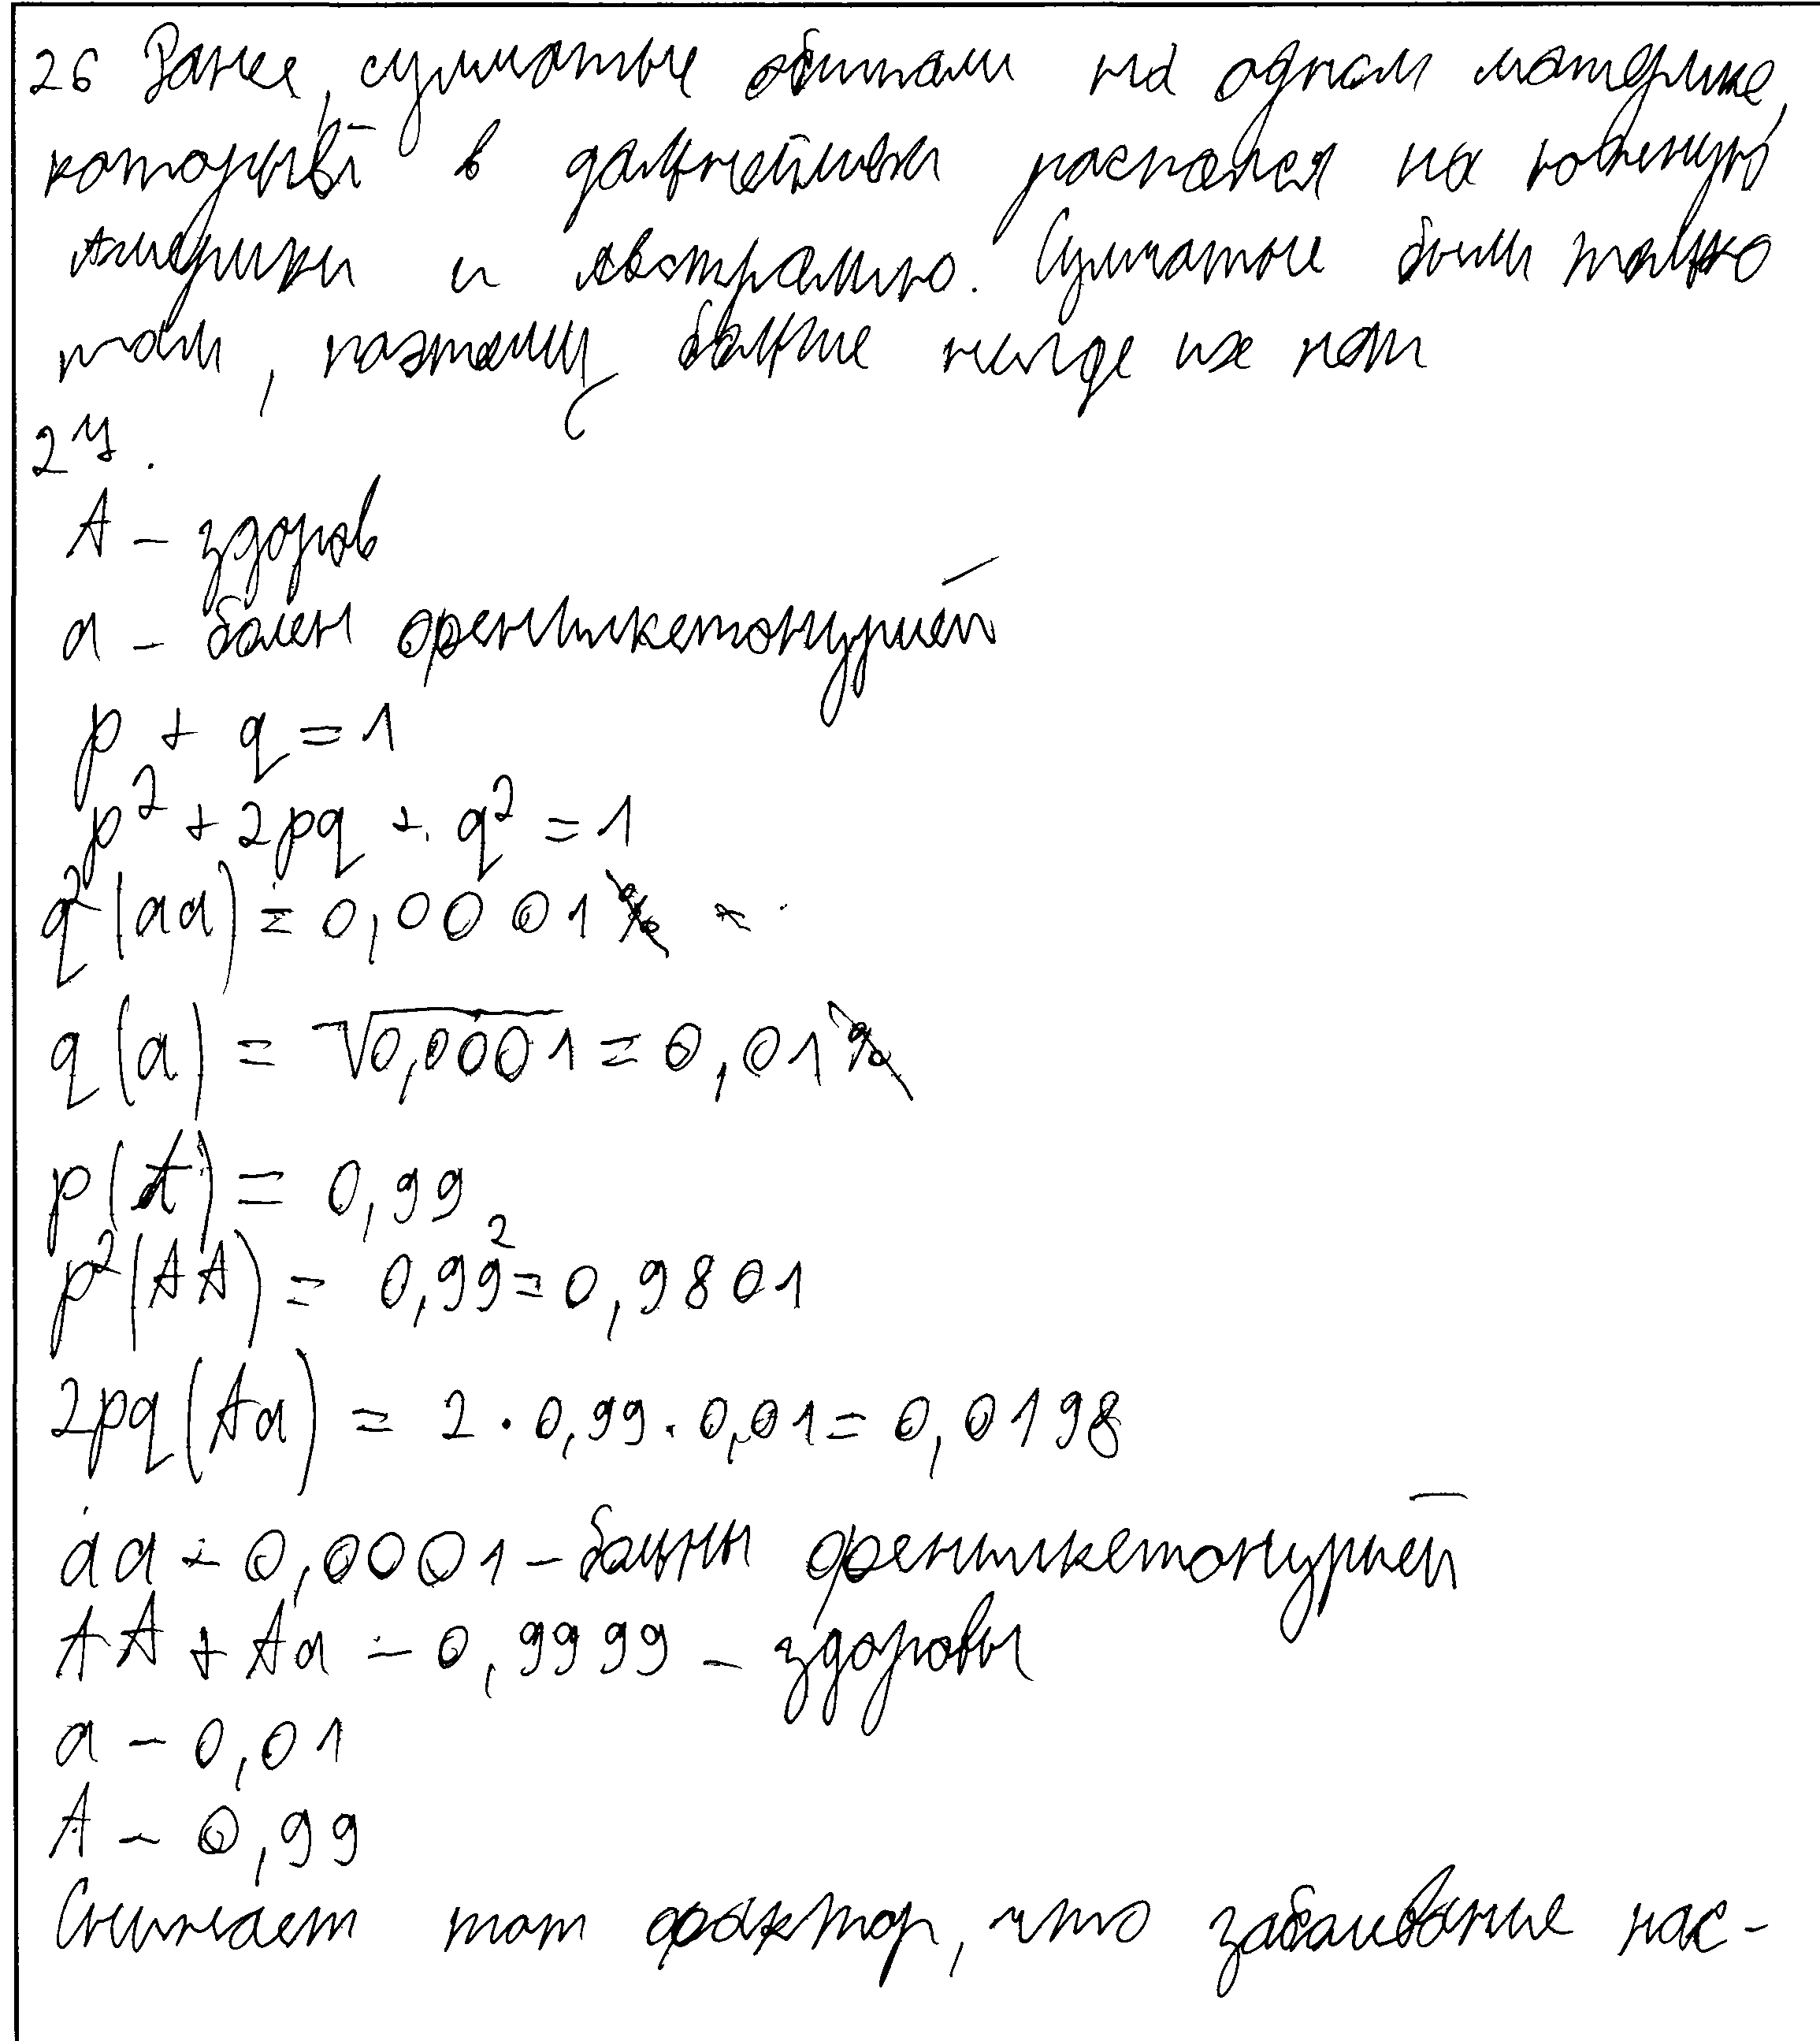 26 Ранее, сумчатые обитали на одном материке,
который в дальнейшем распался на южную
Америки и Австралию. Сумчатые были только
там, поэтому больше нигде их нет
27.
A – здоров
a – болен фенилкетонурией
p + q = 1
p² + 2pq + q² = 1
q²(aa) = 0,0001
q(a) = √0,0001 = 0,01
p(A) = 0,99
p²(AA) = 0,99² = 0,9801
2pq(Aa) = 2 · 0,99 · 0,01 = 0,0198
aa – 0,0001 – больны фенилкетонурией
AA + Aa – 0,9999 – здоровы
a – 0,01
A – 0,99
Снижает тот фактор, что заболевание нас-